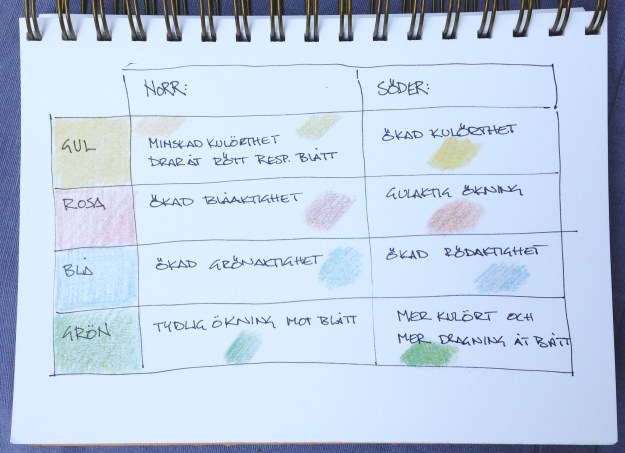 NORR: SÖDER:
GUL
MINSKAD KULÖRTHET
DRAR ÅT RÖTT RESP. BLÅTT
ÖKAD KULÖRTHET
ROSA
ÖKAD BLÅAKTIGHET
GULAKTIG ÖKNING
BLÅ
ÖKAD GRÖNAKTIGHET
ÖKAD RÖDAKTIGHET
GRÖN
TYDLIG ÖKNING MOT BLÅTT
MER KULÖRT OCH
MER DRAGNING ÅT BLÅTT